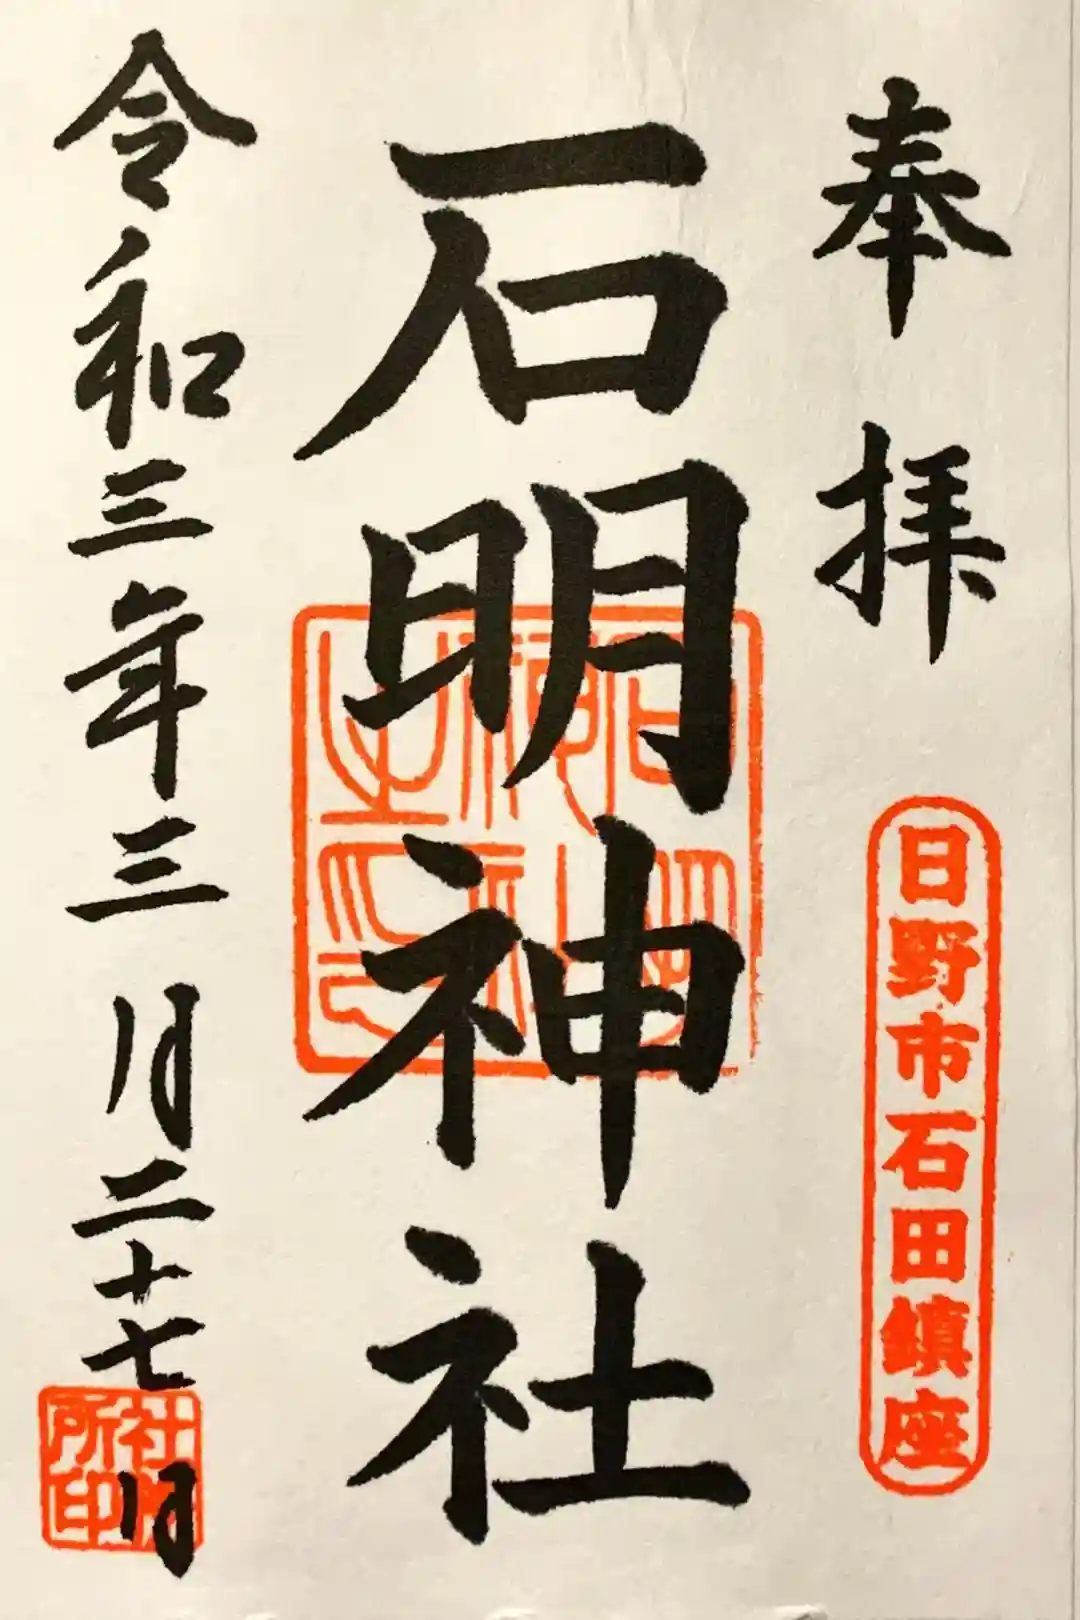 奉拝
日野市石田鎮座
石明神社
石明神社之印
令和三年三月二十七日
社務所印